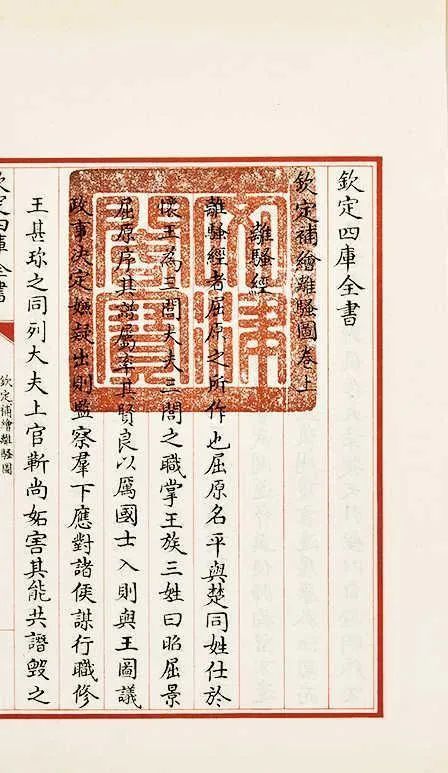 欽定四庫全書
欽定補繪離騷圖卷上
離騷經
離騷經者屈原之所作也屈原名平與楚同姓仕於
懷王為三閭大夫三閭之職掌王族三姓曰昭屈景
屈原序其譜屬率其賢良以厲國士入則與王圖議
政事決定嫌疑出則監察羣下應對諸侯謀行職修
王甚珍之同列大夫上官靳尚妬害其能共譖毀之
欽定四庫全書
欽定補繪離騷圖